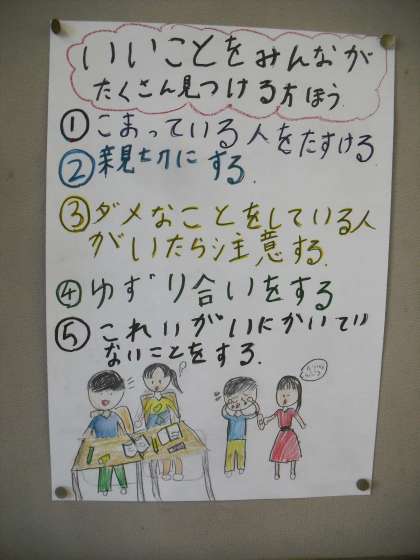 いいことをみんなが
たくさん見つける方ほう
①こまっている人をたすける
②親切にする.
③ダメなことをしている人
がいたら注意する.
④ゆずり合いをする
⑤これいがいにかいてい
ないことをする.